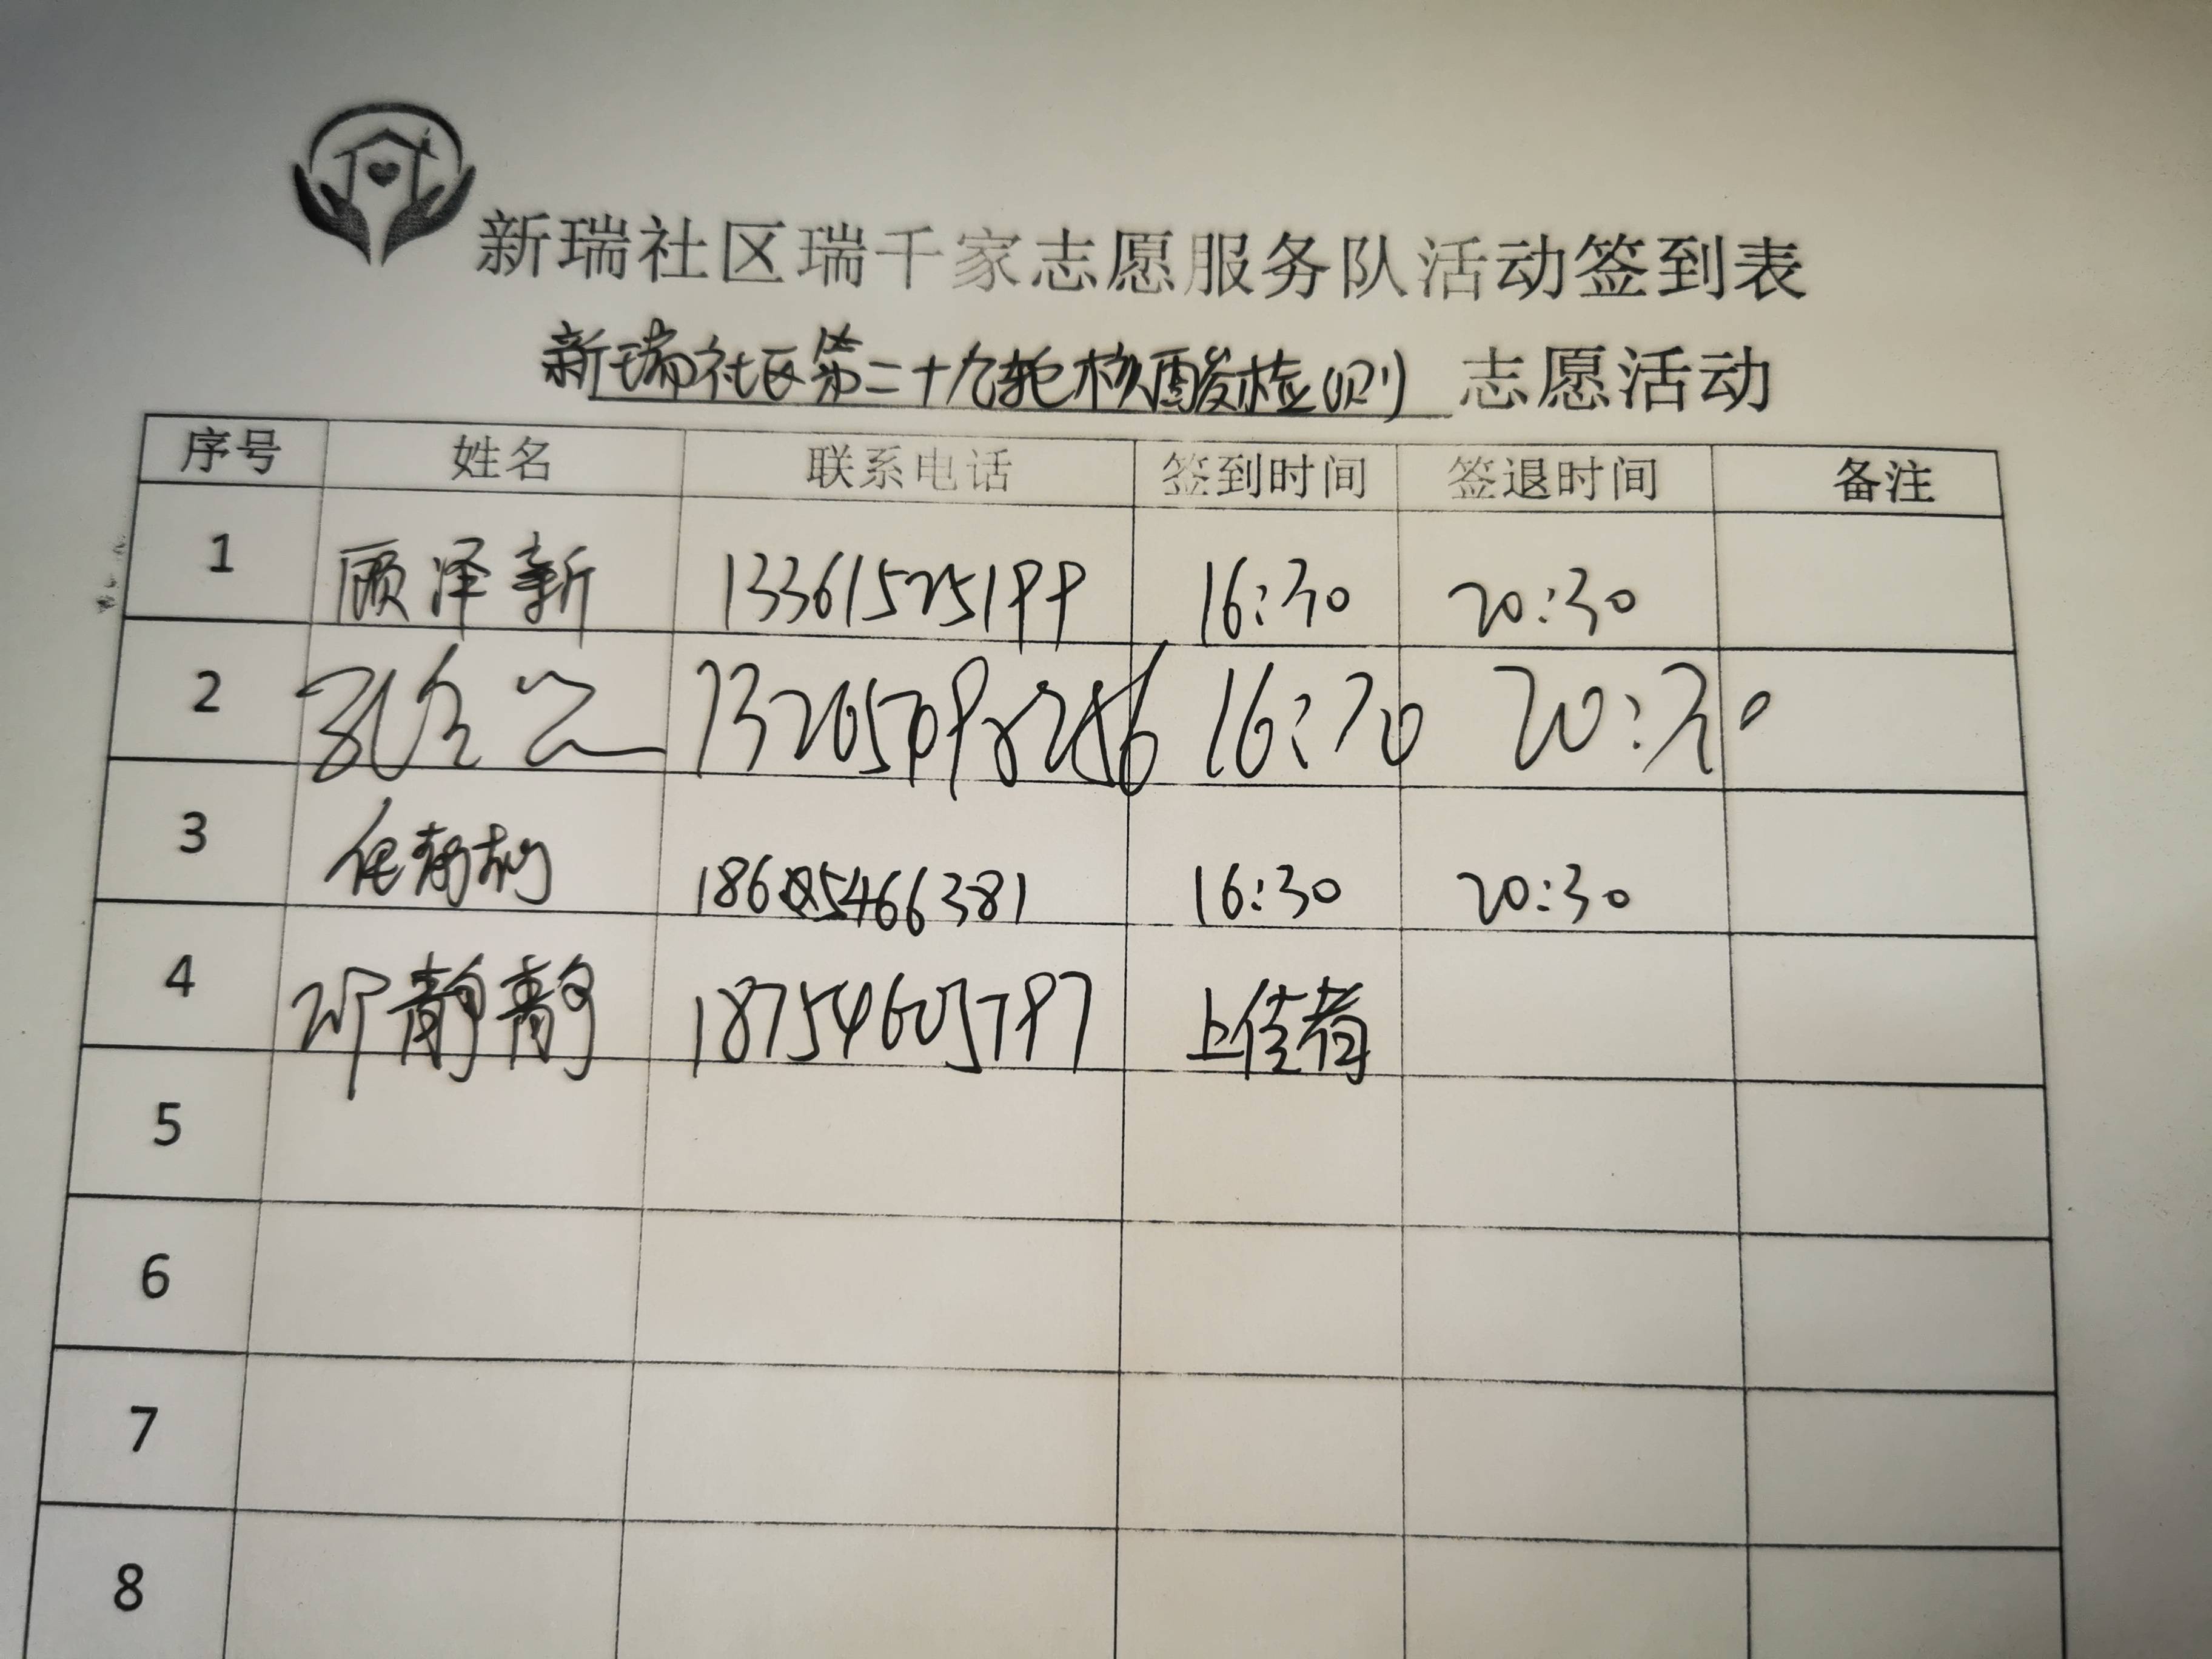 新瑞社区瑞千家志愿服务队活动签到表
新瑞社区第二十九轮核酸检测 志愿活动
序号 姓名 联系电话 签到时间 签退时间 备注
1 顾泽新 13361525199 16:30 20:30
2 16:30 20:30
3 任 18605466381 16:30 20:30
4 邓静静 18754605797 上传者
5
6
7
8